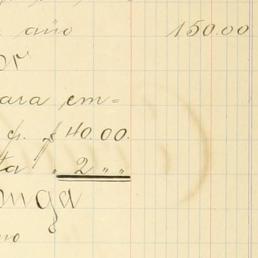 año 150.00
or
para em=
p. $40.00.
ta " 2 " "
onga
no